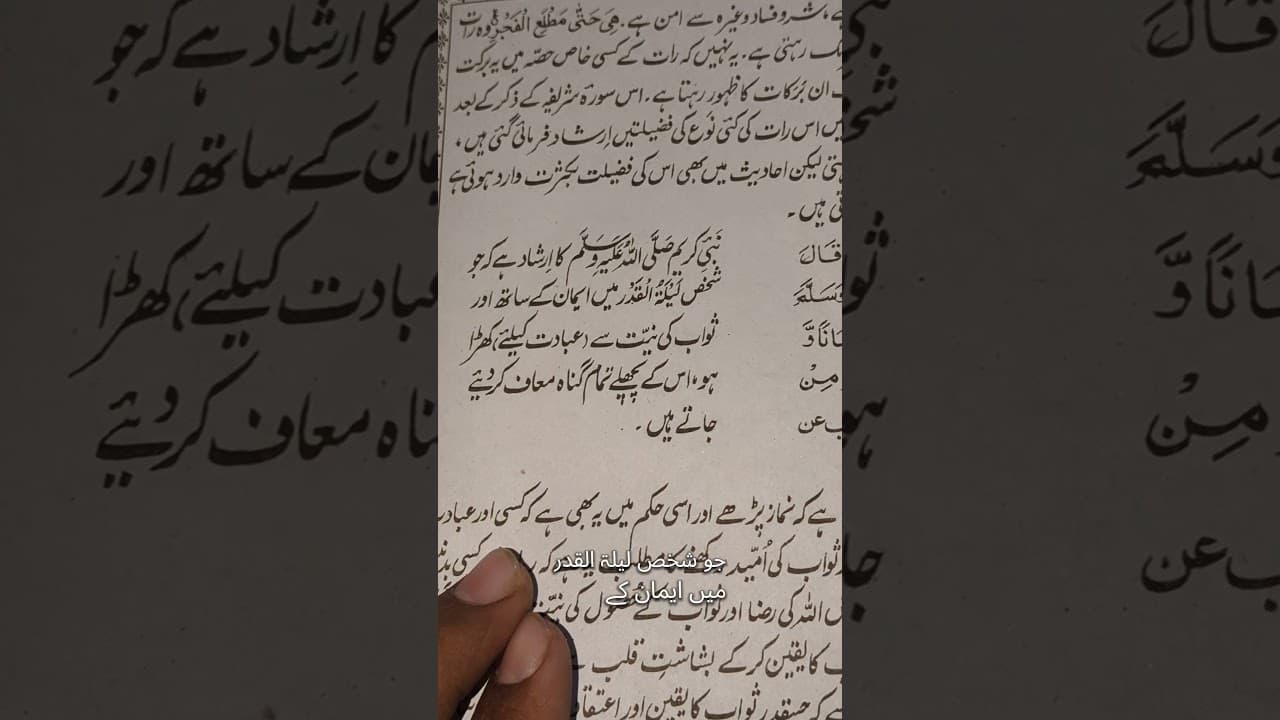 ے، شر و فساد وغیرہ سے امن ہے۔ هِيَ حَتّٰى مَطْلَعِ الْفَجْرِ ۝ وہ رات
تک رہتی ہے۔ یہ نہیں کہ رات کے کسی خاص حصّہ میں یہ برکت
ان برکات کا ظہور رہتا ہے۔ اس سورۃ شریفہ کے ذکر کے بعد
میں اس رات کی کئی نوع کی فضیلتیں اِرشاد فرمائی گئی ہیں،
لیکن احادیث میں بھی اس کی فضیلت بکثرت وارد ہوئی ہے
ہیں۔
نَبیِ کریم صَلَّی اللہُ عَلَیْہِ وَسَلَّم کا اِرشاد ہے کہ جو
شخص لَیْلَۃُ الْقَدْر میں ایمان کے ساتھ اور
ثواب کی نیّت سے (عبادت کیلئے) کھڑا
ہو، اس کے پچھلے تمام گناہ معاف کر دیئے
جاتے ہیں۔
قَالَ
وَسَلَّمَ
مِنْ
عن
ہے کہ نماز پڑھے اور اسی حکم میں یہ بھی ہے کہ کسی اور عبادت
ثواب کی اُمّید
اللہ کی رضا اور ثواب کے حصول کی
کا یقین کر کے بشاشتِ قلب
کہ جسقدر ثواب کا یقین اور اعتقاد
جو شخص لیلۃ القدر
میں ایمان کے